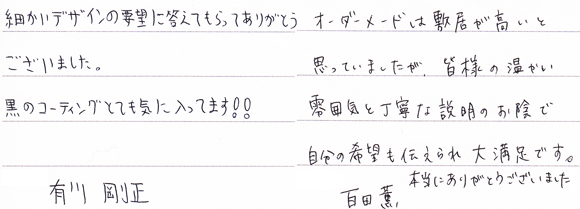 細かいデザインの要望に答えてもらってありがとう
ございました。
黒のコーティングとても気に入ってます!!
有川 剛正
オーダーメードは敷居が高いと
思っていましたが、皆様の温かい
雰囲気と丁寧な説明のお陰で
自分の希望も伝えられ大満足です。
本当にありがとうございました
百田 薫